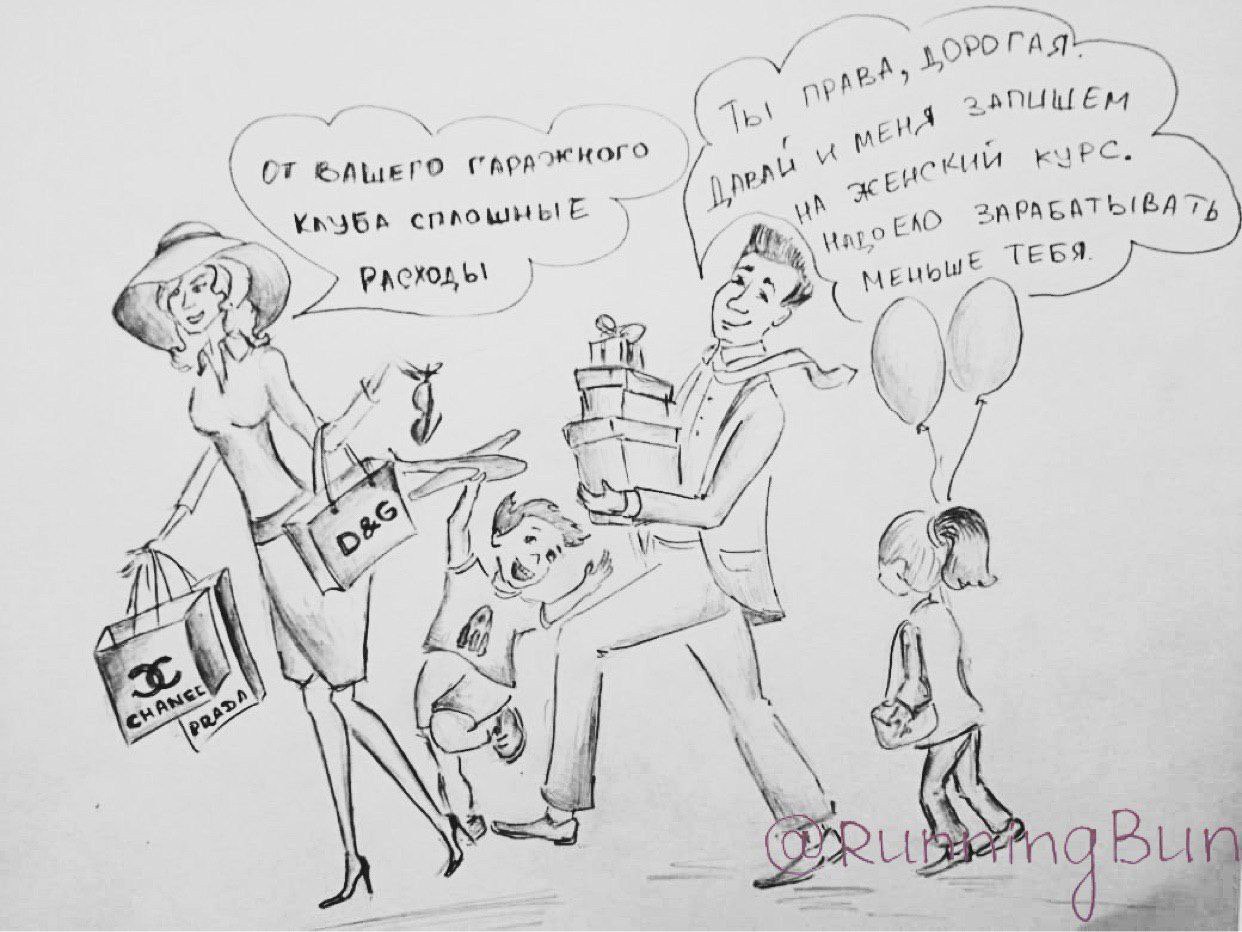 ОТ ВАШЕГО ГАРАЖНОГО
КЛУБА СПЛОШНЫЕ
РАСХОДЫ
ТЫ ПРАВА, ДОРОГАЯ.
ДАВАЙ И МЕНЯ ЗАПИШЕМ
НА ЖЕНСКИЙ КУРС.
НАДОЕЛО ЗАРАБАТЫВАТЬ
МЕНЬШЕ ТЕБЯ.
D&G
CHANEL
PRADA
@RunningBun